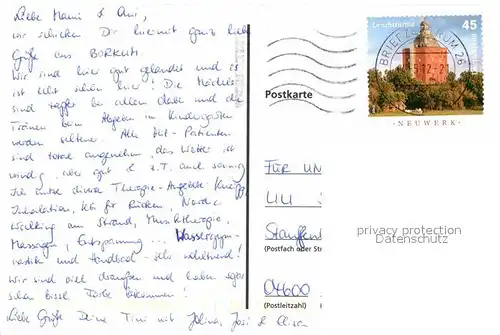 Liebe Mami & Omi,
wir schicken Dir hiermit ganz liebe
Grüße aus BORKUM.
Wir sind hier gut gelandet und es
ist echt schön hier! Die Mädels
sind tapfer bei allem dabei und die
Tränen beim Abgeben im Kindergarten
werden seltener. Alle Mit-Patienten
sind total angenehm, das Wetter ist
windig, aber gut & z.T. auch sonnig
Ich nutze diverse Therapie-Angebote Kneipp,
Inhalation, für Rücken, Nordic
Walking am Strand, Musiktherapie,
Massagen, Entspannung ... Wassergym-
nastik und
Wir sind viel draußen und haben sogar
schon bissel Farbe bekommen!
Liebe Grüße Deine mit
Leuchttürme 45
BRIEFZENTRUM 26
-NEUWERK-
Postkarte
FÜR
(Postfach oder Str
04600
(Postleitzahl)
privacy protection
Datenschutz